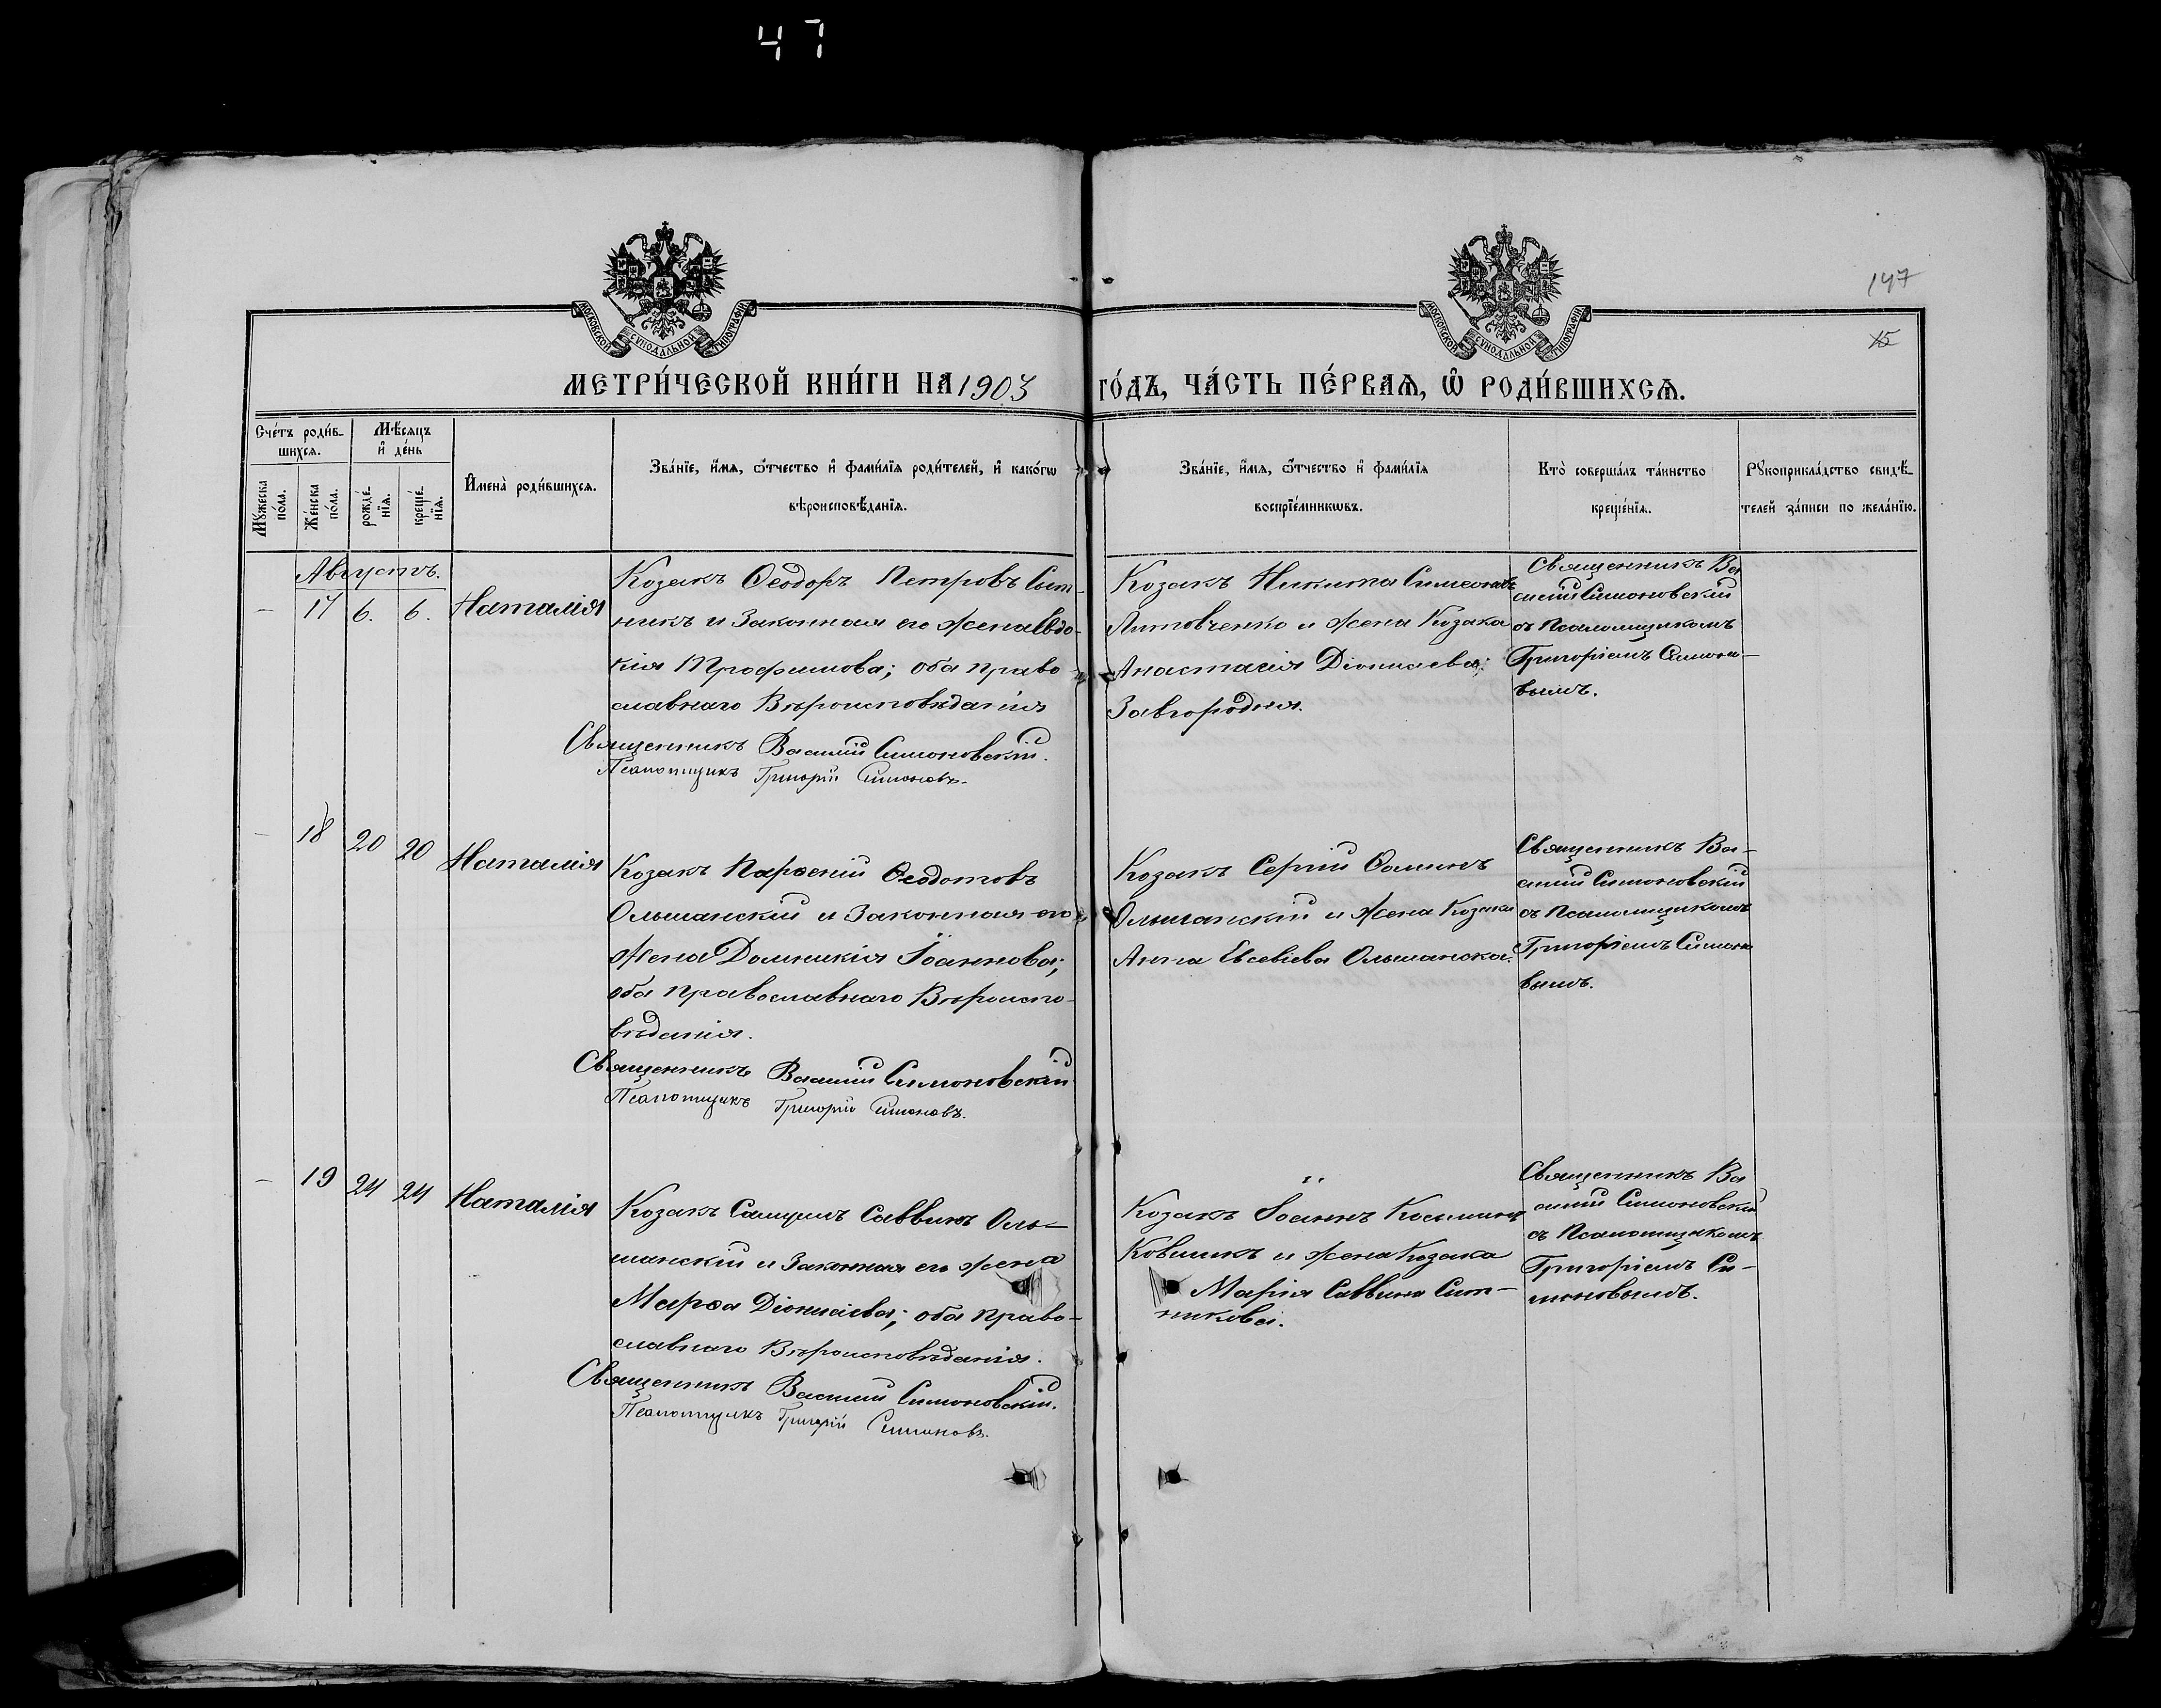 47
147
15
МОСКОВСКОЙ СѴНОДАЛЬНОЙ ТИПОГРАФІИ
МОСКОВСКОЙ СѴНОДАЛЬНОЙ ТИПОГРАФІИ
МЕТРИ́ЧЕСКОЙ КНИ́ГИ НА 1903 ГО́ДЪ, ЧА́СТЬ ПЕ́РВАѦ, Ѡ҆ РОДИ́ВШИХСѦ.
Сче́тъ роди́в-
шихсѧ.
Мѣ́сѧцъ
и҆ де́нь
Мꙋ́жеска
по́ла.
Же́нска
по́ла.
рожде́-
нїѧ.
креще́-
нїѧ.
И҆мена̀ роди́вшихсѧ.
Зва́нїе, и҆́мѧ, ѻ҆́тчество и҆ фами́лїѧ роди́телей, и҆ како́гѡ
вѣроисповѣ́данїѧ.
Зва́нїе, и҆́мѧ, ѻ҆́тчество и҆ фами́лїѧ
воспрїе́мникѡвъ.
Кто̀ соверша́лъ та́инство
креще́нїѧ.
Рꙋкоприкла́дство свидѣ́-
телей за́писи по жела́нїю.
Августъ.
- 17 6. 6. Наталія
Козакъ Ѳеодоръ Петровъ Сит-
никъ и Законная его жена Евдо-
кія Трофимова; оба право-
славнаго Вѣроисповѣданія
Священникъ Василій Симоновскій.
Псаломщикъ Григорій Симоновъ.
Козакъ Никита Симеоновъ
Литовченко и жена Козака
Анастасія Діонисіева
Завгородняя.
Священникъ Ва
силій Симоновскій
съ Псаломщикомъ
Григоріемъ Симоно-
вымъ.
- 18 20 20 Наталія
Козакъ Парѳеній Ѳеодотовъ
Ольшанскій и Законная его
жена Домникія Іоаннова;
оба православнаго Вѣроиспо-
вѣданія.
Священникъ Василій Симоновскій
Псаломщикъ Григорій Симоновъ.
Козакъ Сергій Ѳоминъ
Ольшанскій и жена Козака
Анна Евсевіева Ольшанска.
Священникъ Ва-
силій Симоновскій
съ Псаломщикомъ
Григоріемъ Симоно
вымъ.
- 19 24 24 Наталія
Козакъ Самуилъ Саввинъ Оль-
шанскій и Законная его жена
Марѳа Діонисіева; оба право-
славнаго Вѣроисповѣданія.
Священникъ Василій Симоновскій.
Псаломщикъ Григорій Симоновъ.
Козакъ Іоаннъ Косьминъ
Ковшикъ и жена Козака
Марія Саввина Сит-
никова.
Священникъ Ва
силій Симоновскій
съ Псаломщикомъ
Григоріемъ Си-
моновымъ.